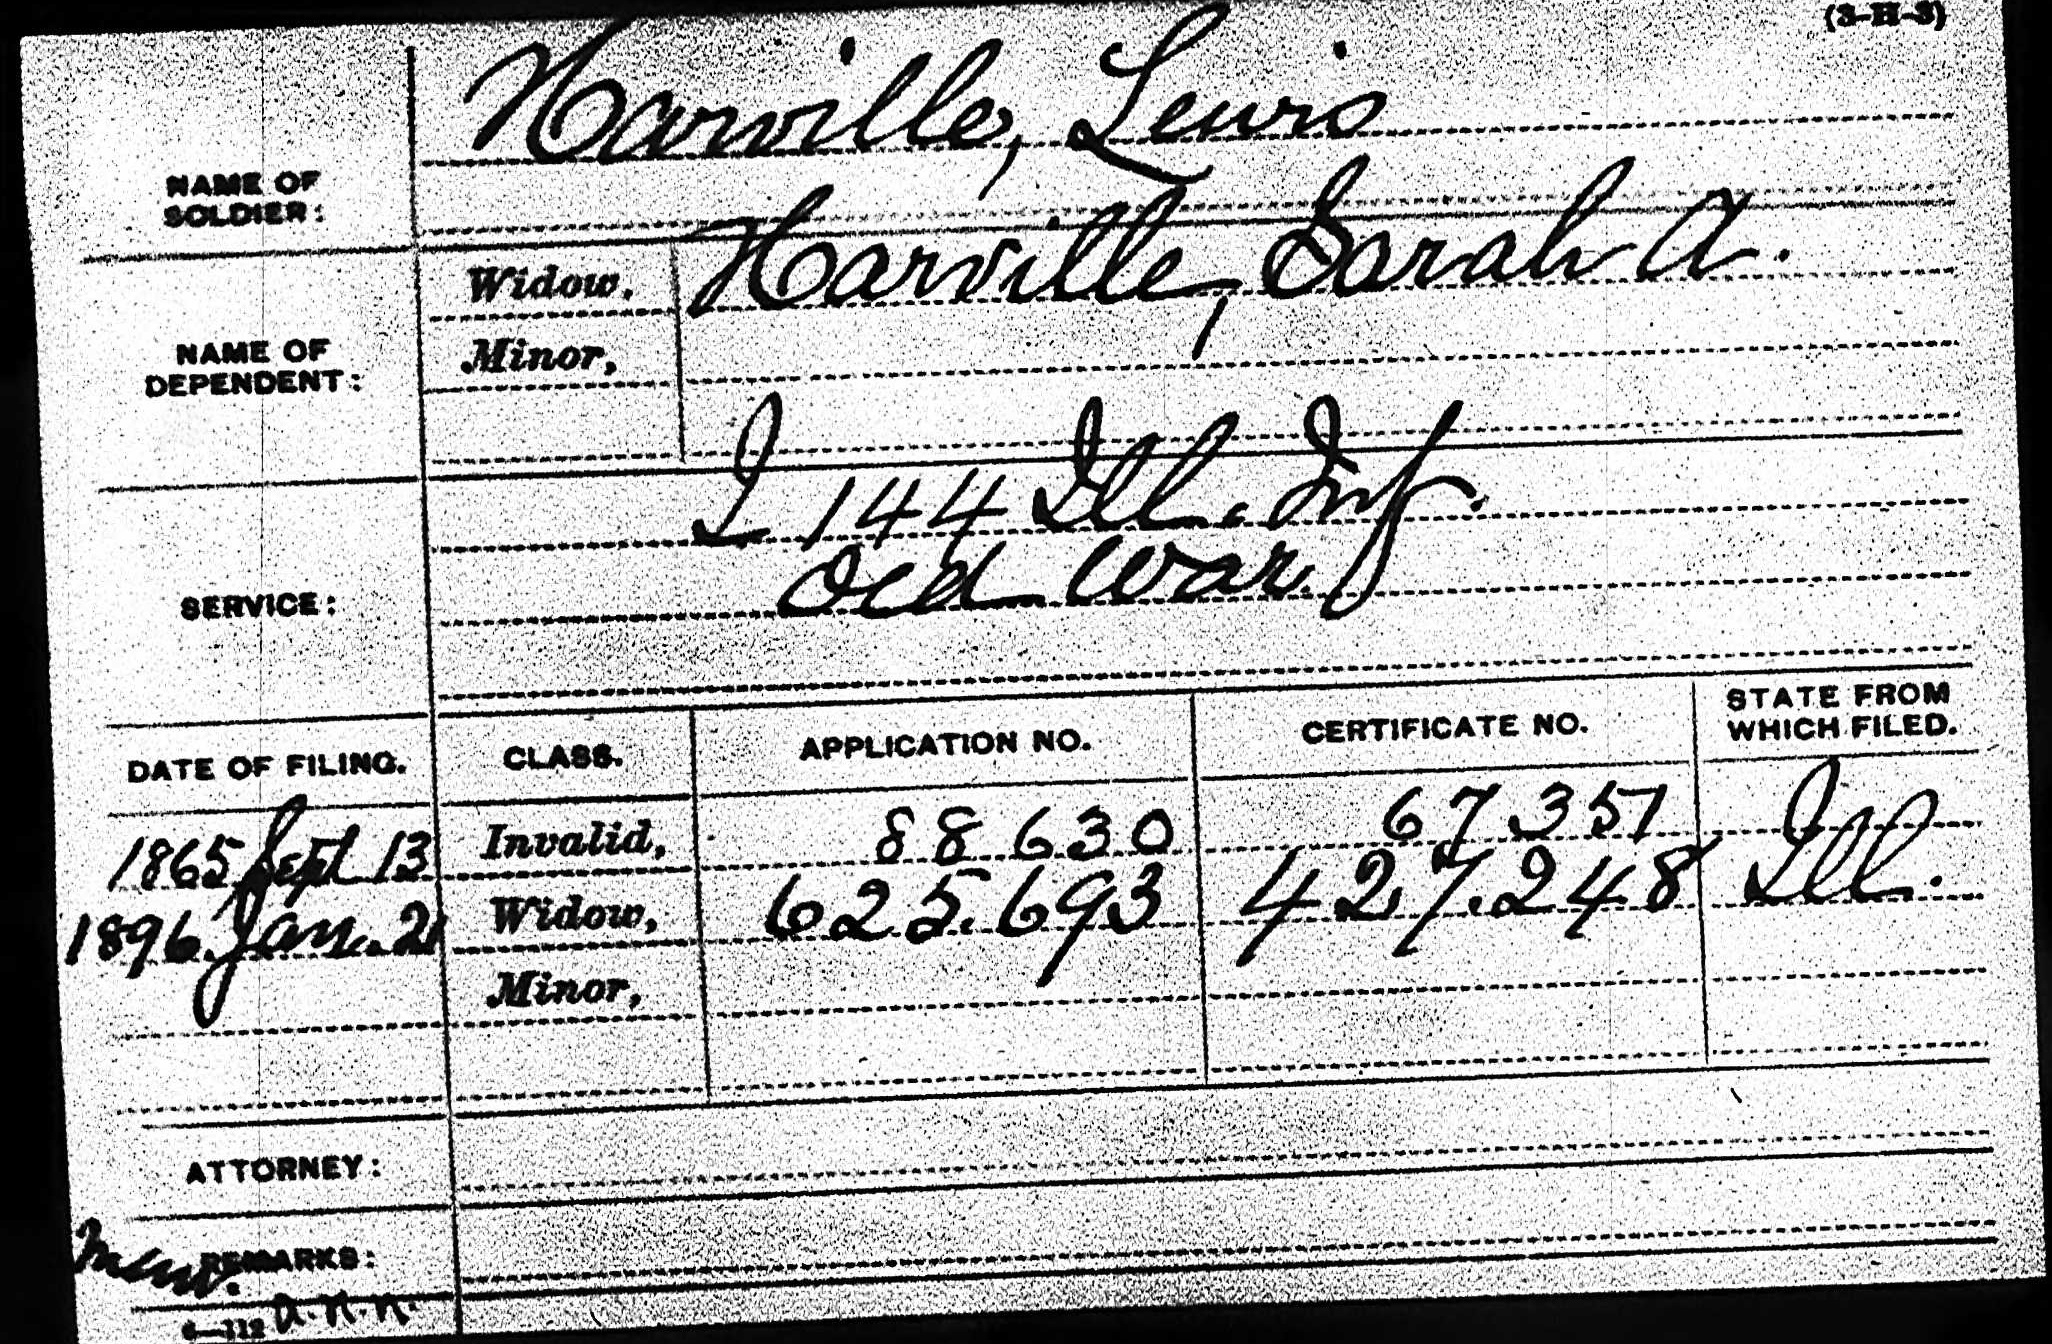 (3-H-3)
Harville, Lewis
NAME OF
SOLDIER:
Widow, Harville, Sarah A.
NAME OF
DEPENDENT:
Minor,
I 144 Ill. Inf.
Old War.
SERVICE:
DATE OF FILING. CLASS. APPLICATION NO. CERTIFICATE NO. STATE FROM WHICH FILED.
1865 Sept 13 Invalid, 88630 67351
1896 Jan. 21 Widow, 625.693 427.248 Ill.
Minor,
ATTORNEY:
REMARKS:
6—112